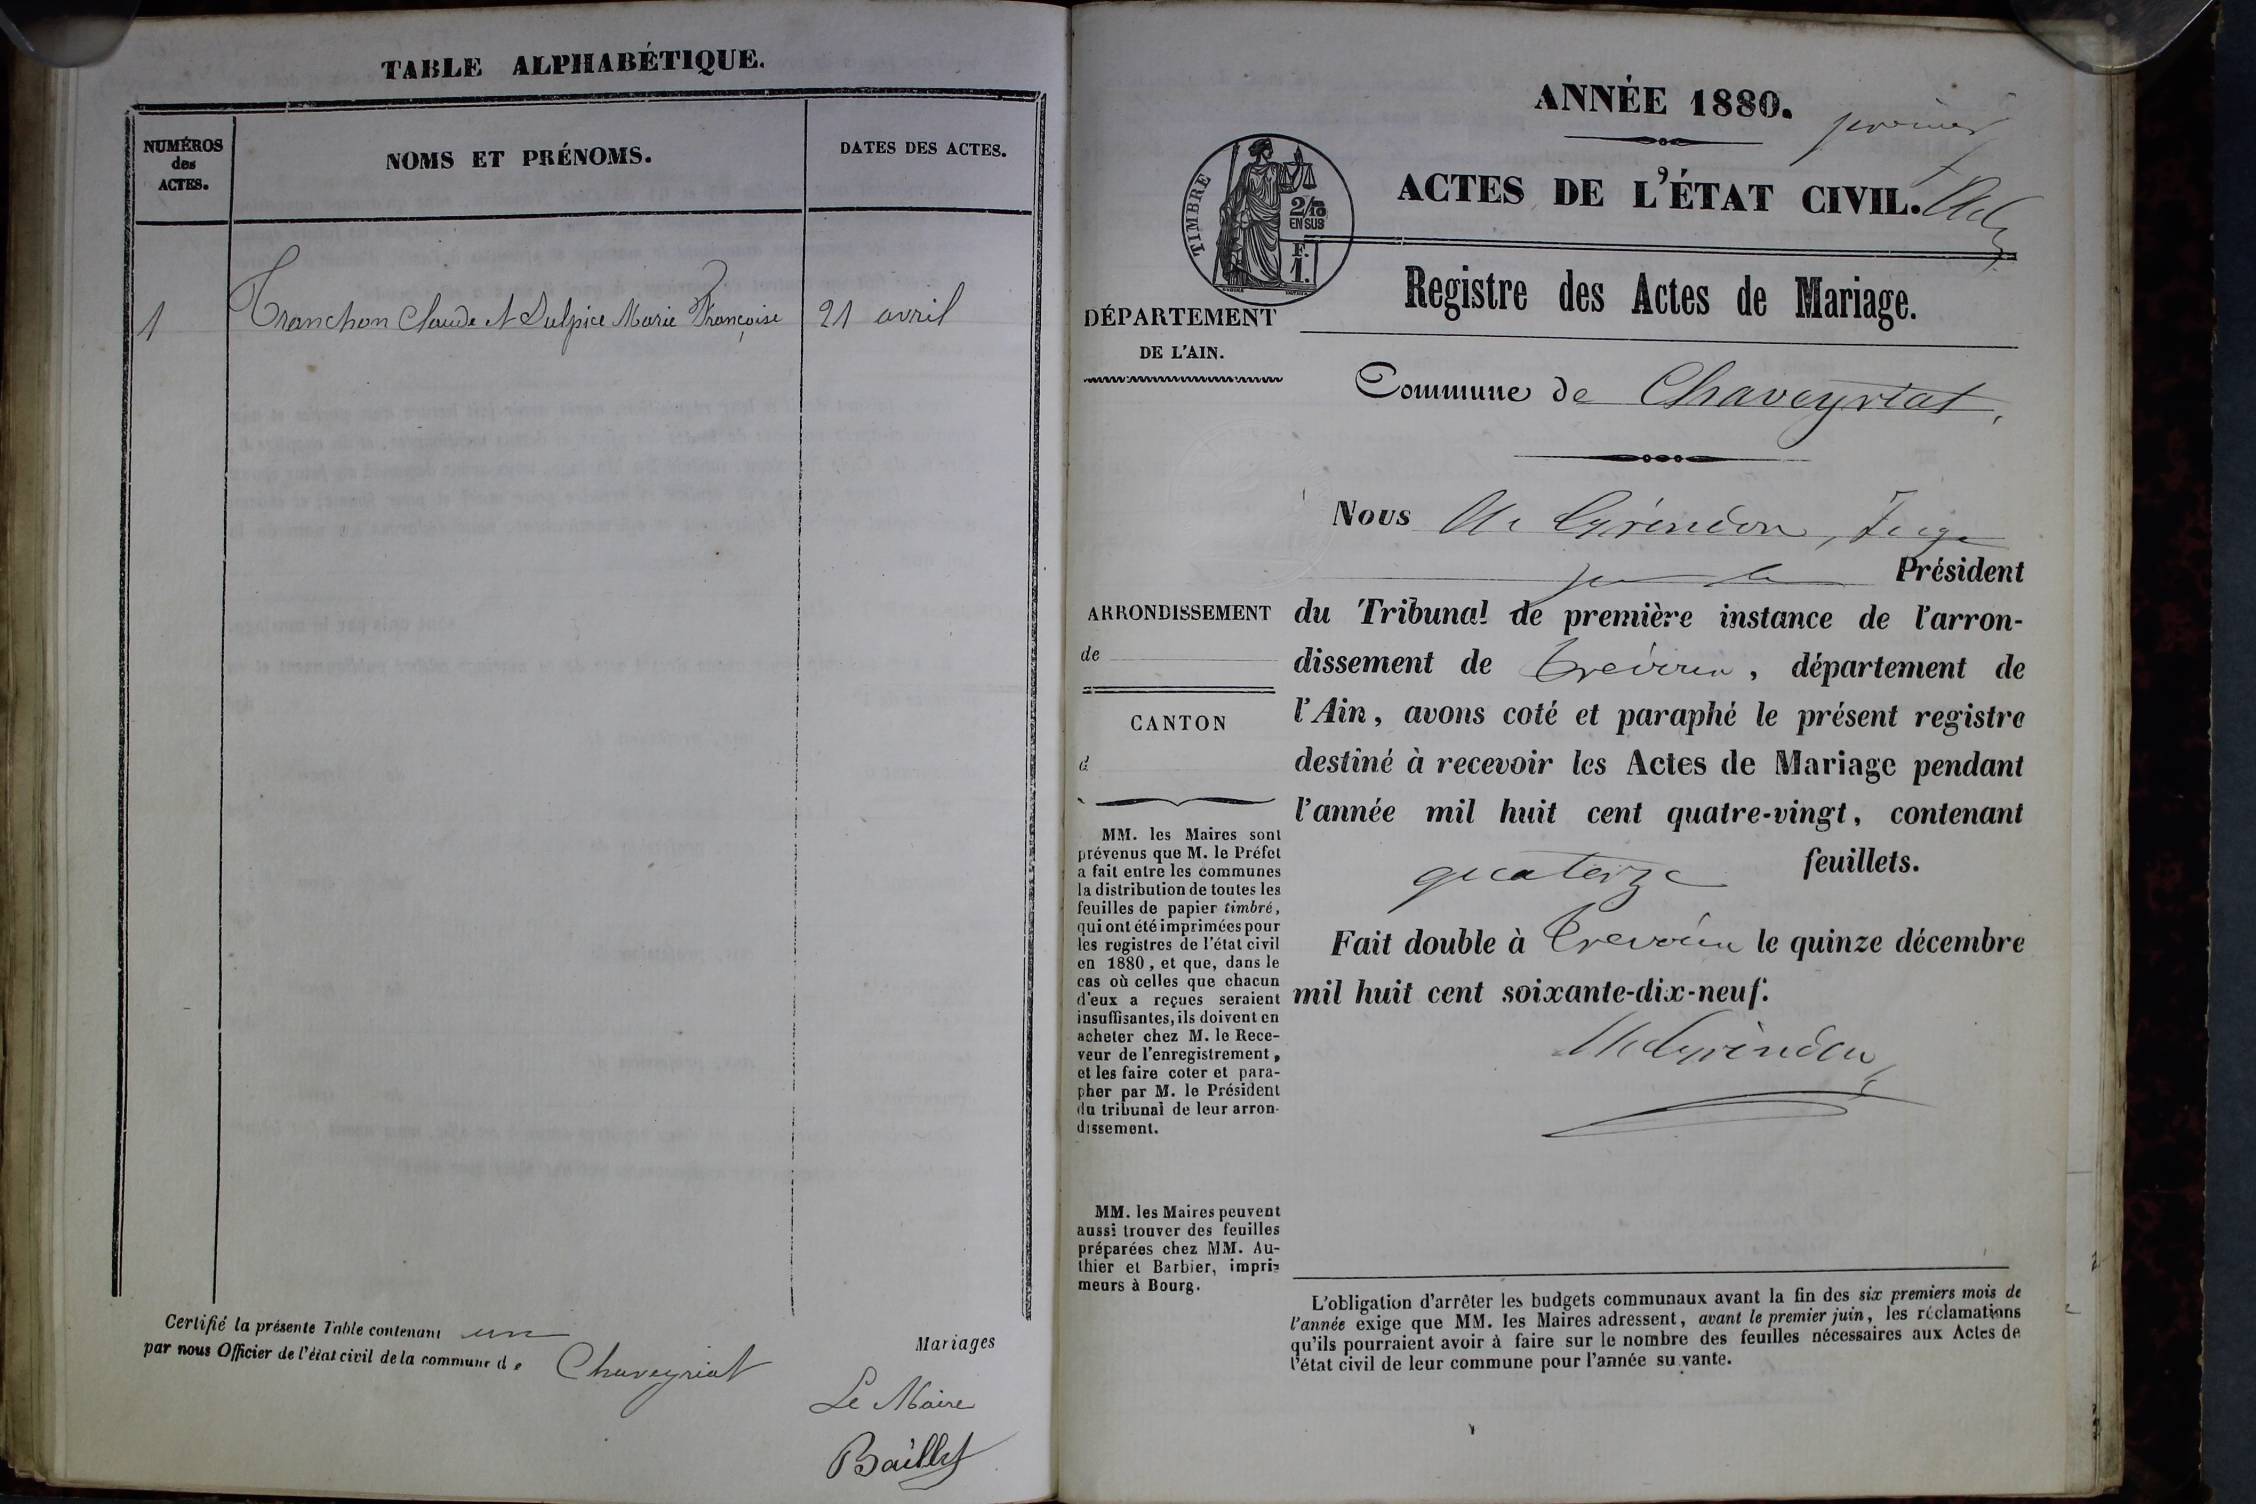 TABLE ALPHABÉTIQUE.
NUMÉROS
des
ACTES.
NOMS ET PRÉNOMS.
DATES DES ACTES.
1 Tranchon Claude et Sulpice Marie Françoise 21 avril
Certifié la présente Table contenant un Mariages
par nous Officier de l'état civil de la commune de Chaveyriat
Le Maire
Baillet
ANNÉE 1880.
premier
ACTES DE L'ÉTAT CIVIL.
TIMBRE
2/10
EN SUS
F.
1.
Registre des Actes de Mariage.
DÉPARTEMENT
DE L'AIN.
Commune de Chaveyriat,
Nous Juge
pour le Président
du Tribunal de première instance de l'arron-
dissement de Trévoux, département de
l'Ain, avons coté et paraphé le présent registre
destiné à recevoir les Actes de Mariage pendant
l'année mil huit cent quatre-vingt, contenant
quatorze feuillets.
Fait double à Trévoux le quinze décembre
mil huit cent soixante-dix-neuf.
ARRONDISSEMENT
de
CANTON
d
MM. les Maires sont
prévenus que M. le Préfet
a fait entre les communes
la distribution de toutes les
feuilles de papier timbré,
qui ont été imprimées pour
les registres de l'état civil
en 1880, et que, dans le
cas où celles que chacun
d'eux a reçues seraient
insuffisantes, ils doivent en
acheter chez M. le Rece-
veur de l'enregistrement,
et les faire coter et para-
pher par M. le Président
du tribunal de leur arron-
dissement.
MM. les Maires peuvent
aussi trouver des feuilles
préparées chez MM. Au-
thier et Barbier, impri-
meurs à Bourg.
L'obligation d'arrêter les budgets communaux avant la fin des six premiers mois de
l'année exige que MM. les Maires adressent, avant le premier juin, les réclamations
qu'ils pourraient avoir à faire sur le nombre des feuilles nécessaires aux Actes de
l'état civil de leur commune pour l'année suivante.